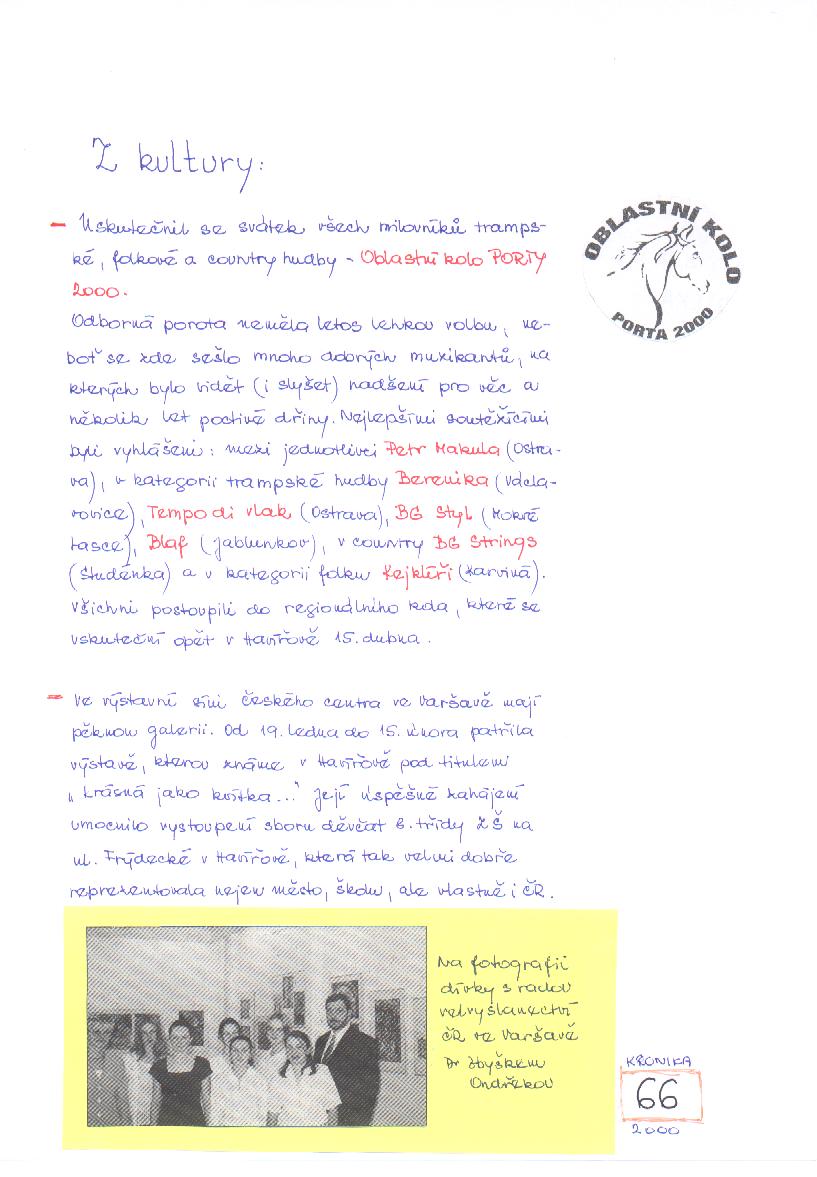 Z kultury:
– Uskutečnil se svátek všech milovníků tramps-
ké, folkové a country hudby - Oblastní kolo PORTY
2000.
OBLASTNÍ KOLO
PORTA 2000
Odborná porota neměla letos lehkou volbu, ne-
boť se zde sešlo mnoho dobrých muzikantů, na
kterých bylo vidět (i slyšet) nadšení pro věc a
několik let poctivé dřiny. Nejlepšími soutěžícími
byli vyhlášeni: mezi jednotlivci Petr Makula (Ostra-
va), v kategorii trampské hudby Berenika (Vdcla-
vovice), Tempo di vlak (Ostrava), BG Styl (Mokré
Lasce), Blaf (Jablunkov), v country BG Strings
(Studénka) a v kategorii folku Kejklíři (Karviná).
Všichni postoupili do regionálního kola, které se
uskuteční opět v Havířově 15. dubna.
– Ve výstavní síni českého centra ve Varšavě mají
pěknou galerii. Od 19. ledna do 15. února patřila
výstavě, kterou známe v Havířově pod titulem
„Krásná jako kvítka..." Její úspěšné zahájení
umocnilo vystoupení sboru děvčat 6. třídy ZŠ na
ul. Frýdecké v Havířově, která tak velmi dobře
reprezentovala nejen město, školu, ale vlastně i ČR.
Na fotografii
dívky s radou
velvyslanectví
ČR ve Varšavě
Dr Zbyškem
Ondřekou
KRONIKA
66
2000